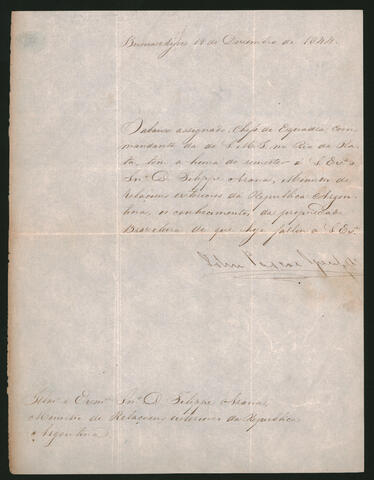 Buenos Ayres 18 de Dezembro de 1844.
O abaixo assignado, Chefe de Esquadra, Com-
mandante da de S. M. I. no Rio da Pra-
ta, tem a honra de remetter á S. Exª. o
Snr. D. Felippe Arana, Ministro de
Relaçoens exteriores da Republica Argen-
tina, os conhecimentos, da propriedade
Brasileira de que hoje fallou á S. Exª.
John Pascoe
Illmo. e Exmo. Snr. D. Felippe Arana,
Ministro de Relaçoens exteriores da Republica
Argentina